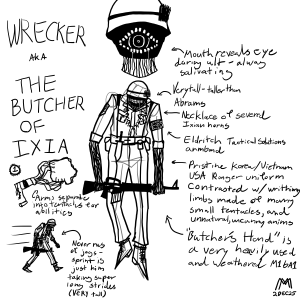 WRECKER
AKA
THE
BUTCHER
OF
IXIA
Mouth reveals eye
during ult - always
salivating
Very tall - taller than
Abrams
Necklace of several
Ixian horns
Eldritch Tactical Solutions
armband
Pristine Korea/Vietnam
USA Ranger uniform
Contrasted w/ writhing
limbs made of many
small tentacles, and
unnatural, uncanny anims
"Butcher's Hand" is
a very heavily used
and weathered M16A1
Arms separate
into tentacles for
abilities
Never runs
or jogs -
sprint is
just him
taking super
long strides
(VERY tall)
2DEC25